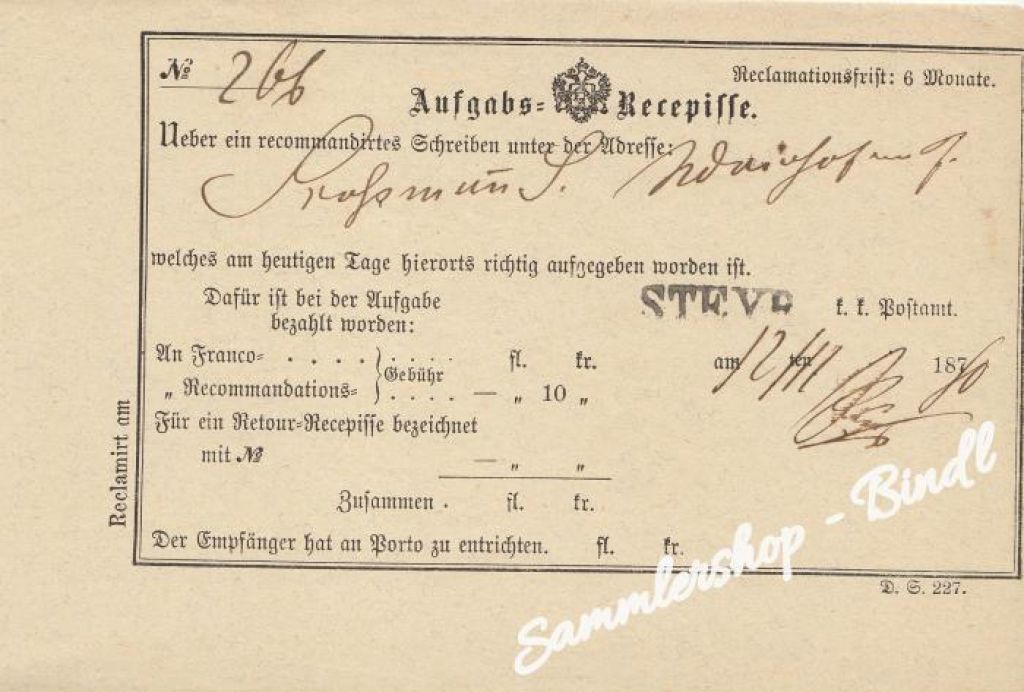 № 266
Reclamationsfrist: 6 Monate.
Aufgabs= Recepisse.
Ueber ein recommandirtes Schreiben unter der Adresse:
welches am heutigen Tage hierorts richtig aufgegeben worden ist.
Dafür ist bei der Aufgabe
bezahlt worden:
STEYR k. k. Postamt.
An Franco= . . . . } . . . . fl. kr.
Gebühr
„ Recommandations= } . . . . — „ 10 „
am 12 ten /11 1876
Für ein Retour=Recepisse bezeichnet
mit № — „ „
Zusammen . fl. kr.
Der Empfänger hat an Porto zu entrichten. fl. kr.
D. S. 227.
Reclamirt am
Sammlershop - Bindl